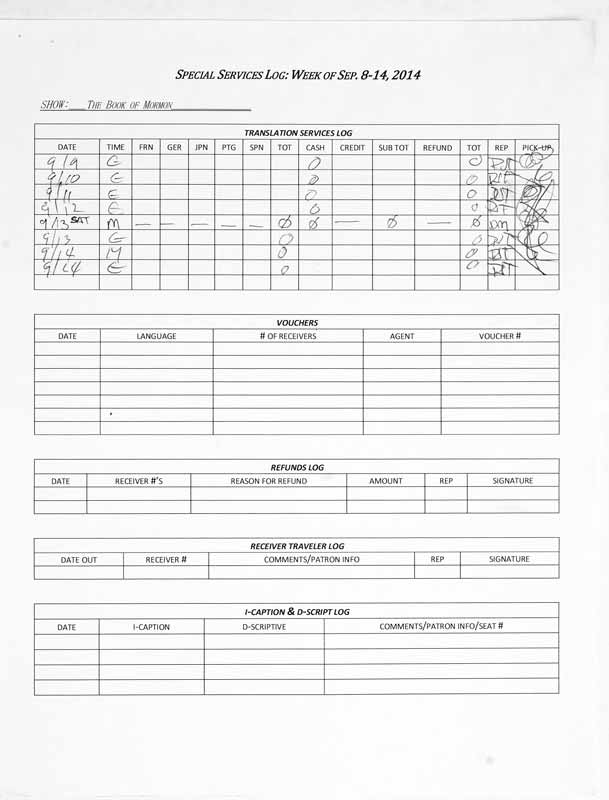 SPECIAL SERVICES LOG: WEEK OF SEP. 8-14, 2014
SHOW: THE BOOK OF MORMON
TRANSLATION SERVICES LOG
DATE TIME FRN GER JPN PTG SPN TOT CASH CREDIT SUB TOT REFUND TOT REP PICK-UP
9/9 E 0 0
9/10 E 0 0
9/11 E 0 0
9/12 E 0 0
9/13 SAT M — — — — — Ø Ø — Ø — Ø DM
9/13 E 0 0
9/14 M 0 0
9/14 E 0 0
VOUCHERS
DATE LANGUAGE # OF RECEIVERS AGENT VOUCHER #
REFUNDS LOG
DATE RECEIVER #'S REASON FOR REFUND AMOUNT REP SIGNATURE
RECEIVER TRAVELER LOG
DATE OUT RECEIVER # COMMENTS/PATRON INFO REP SIGNATURE
I-CAPTION & D-SCRIPT LOG
DATE I-CAPTION D-SCRIPTIVE COMMENTS/PATRON INFO/SEAT #